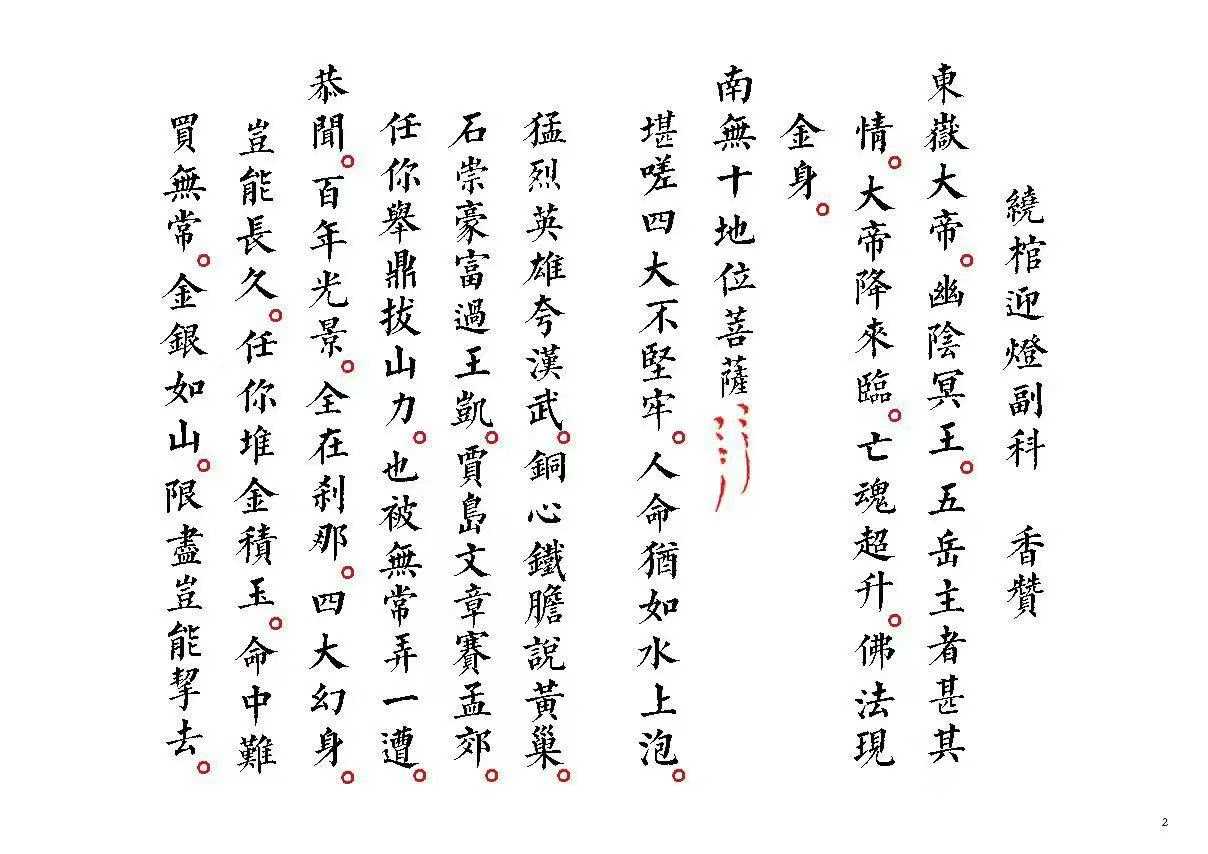 繞棺迎燈副科　香贊
東嶽大帝。幽陰冥王。五岳主者甚其
情。大帝降來臨。亡魂超升。佛法現
金身。
南無十地位菩薩
堪嗟四大不堅牢。人命猶如水上泡。
猛烈英雄夸漢武。銅心鐵膽說黃巢。
石崇豪富過王凱。賈島文章賽孟郊。
任你舉鼎拔山力。也被無常弄一遭。
恭聞。百年光景。全在刹那。四大幻身。
豈能長久。任你堆金積玉。命中難
買無常。金銀如山。限盡豈能挈去。
2